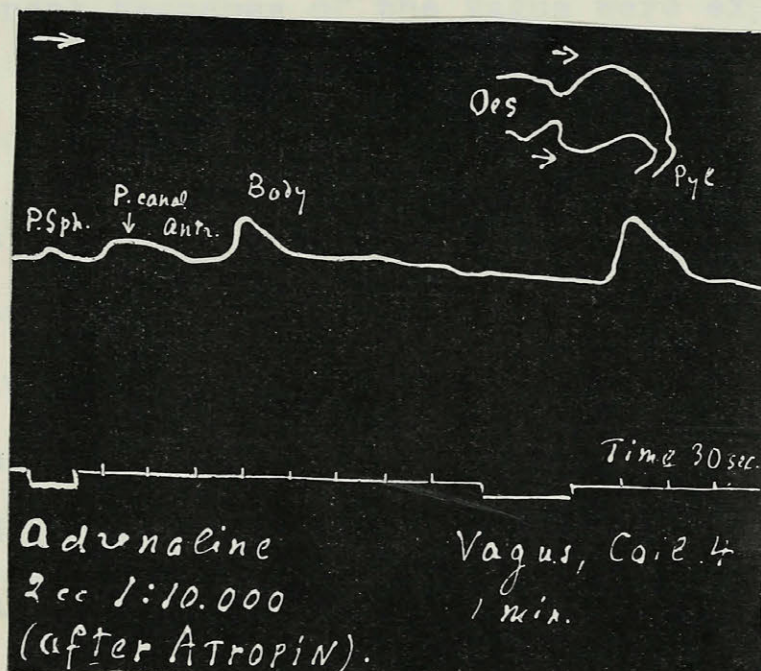 Oes
Pyl
P.Sph.
P. canal
Antr.
Body
Time 30 sec.
Adrenaline
2 cc 1:10.000
(after ATROPIN).
Vagus, Coil.4
1 min.